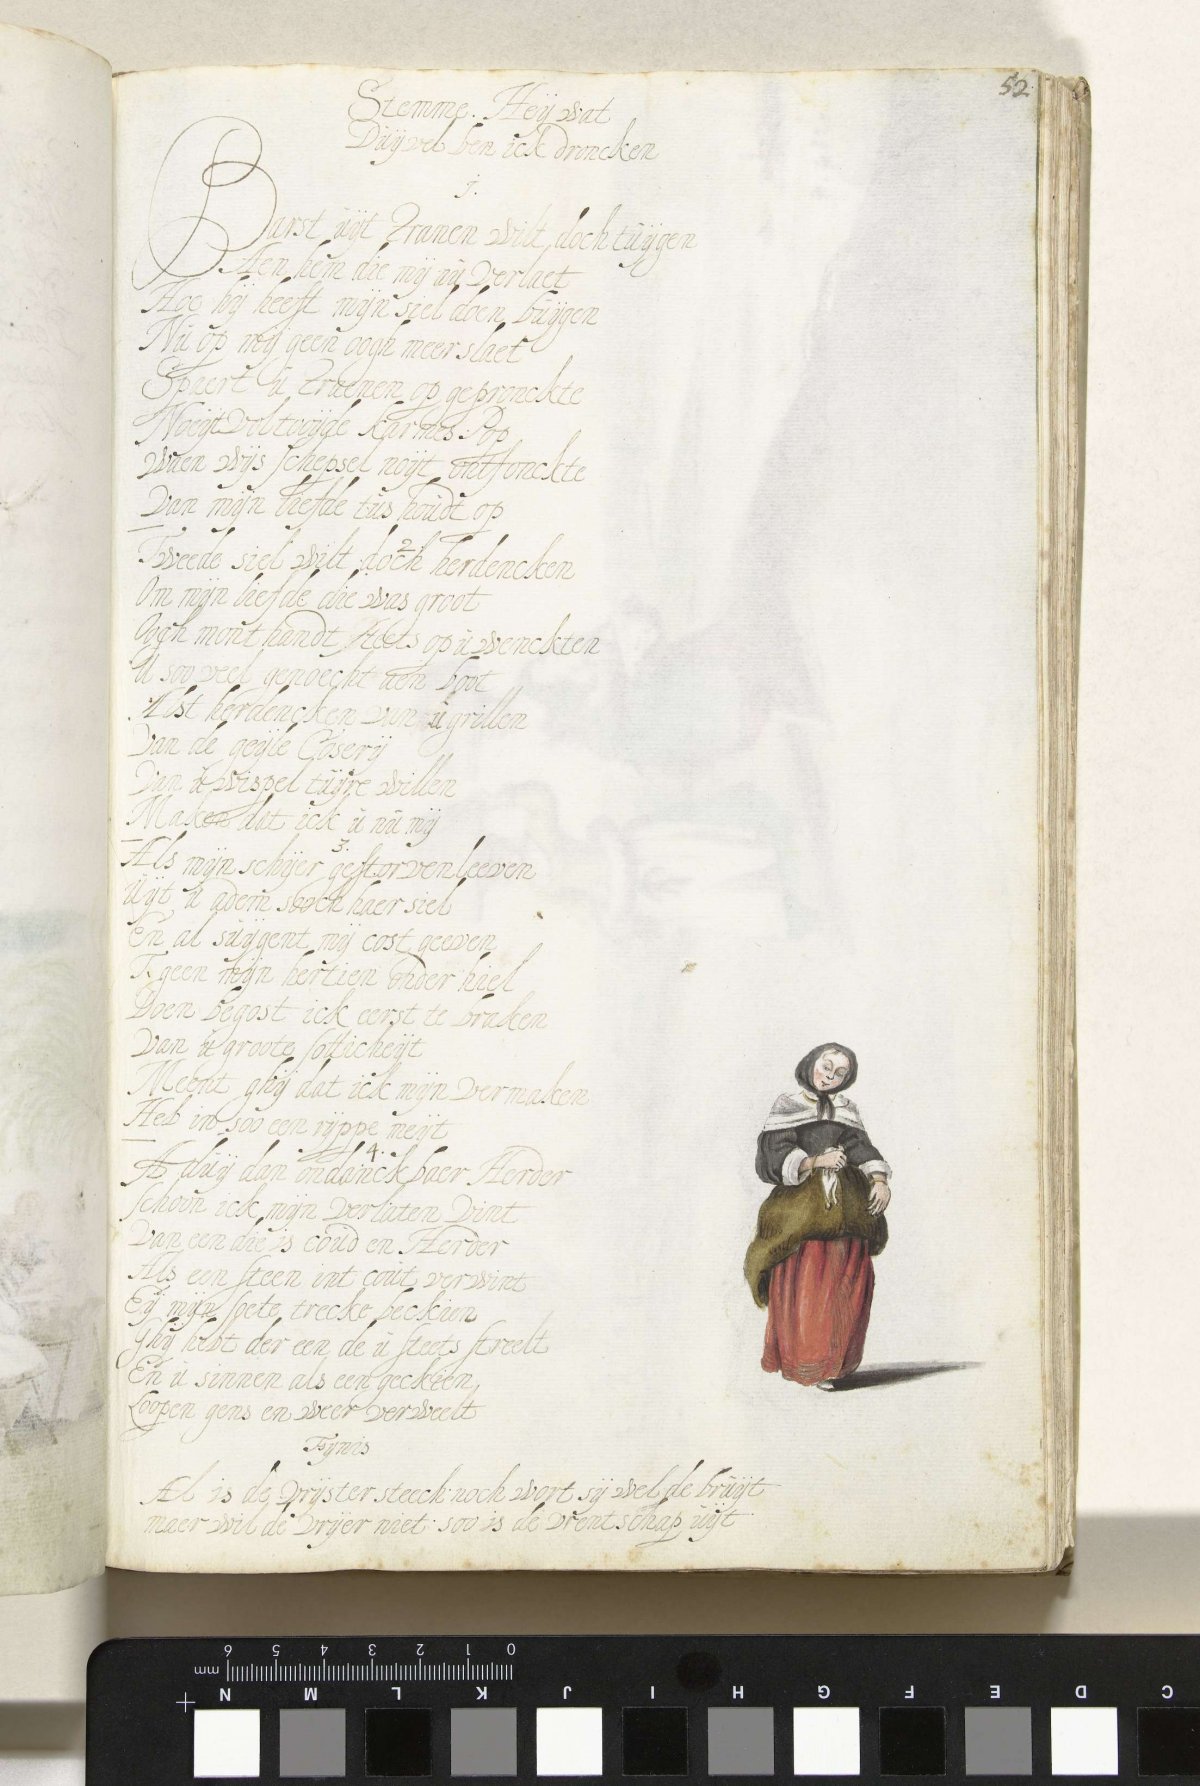 52
Stemme. Heij wat
Duijvel ben ick droncken
1.
Barst uijt Tranen wilt doch tuijgen
Aen hem die mij nu Verlaet
Hoe hij heeft mijn siel doen buijgen
Nu op mij geen oogh meer slaet
Spaert u Traenen op gepronckte
Noeijt Vol twijfle karmes Pop
Waen Wijs schepsel noijt ontfonckte
Van mijn liefde tus houdt op
2
Tweede siel wilt doch herdencken
Om mijn liefde die was groot
Oogh mont handt steets op u wenckten
U soo veel genoecht aen boot
Mist herdencken van u grillen
Van de geijle Coserij
Van u wispel tuijre willen
Maken dat ick u nu mij
3.
Als mijn schijer gestorven leeven
Uijt u adem soch haer siel
En al suijgent mij cost geeven
T. geen mijn hertien onder hiel
Doen begost ick eerst te braken
Van u groote sotticheijt
Meent ghij dat ick mijn Vermaken
Heb in soo een rijppe meijt
4.
A duij dan ondanckbaer Herder
schoon ick mijn Verlaten Vint
Van een die is coud en Herder
Als een steen int cout verwint
Eij mijn soete trecke beckien
Ghij hebt der een de u steets streelt
En u sinnen als een geckien
Loopen gens en weer verweelt
Fijnis
Al is de vrijster steeck noch wort sij wel de bruijt
maer wil de vrijer niet soo is de vrentschap uijt
6 5 4 3 2 1 0
mm
N M L K J I H G F E D C